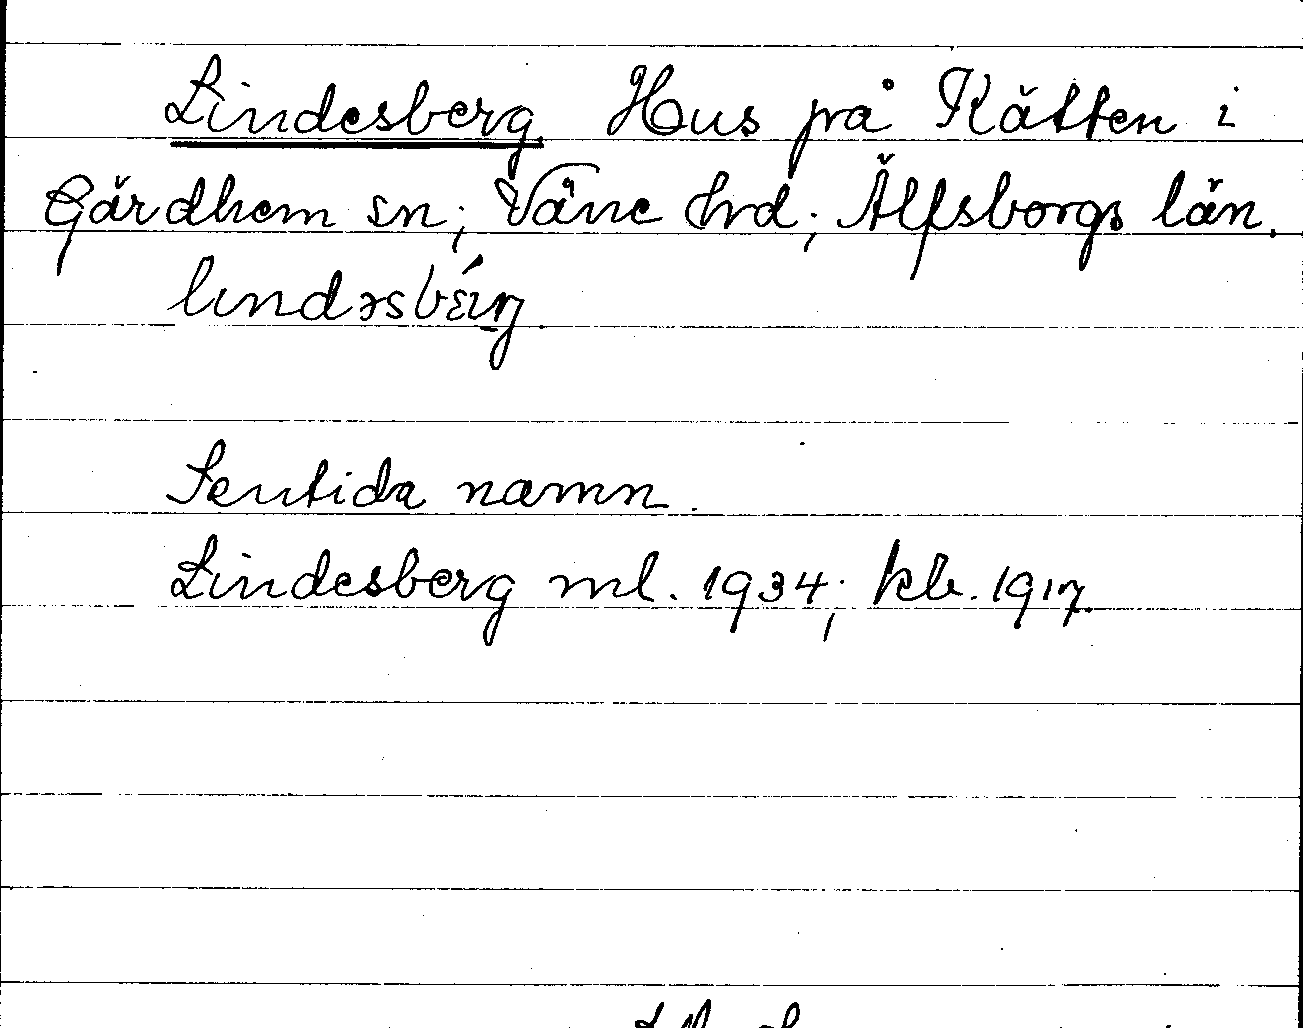 Lindesberg. Hus på Kätten i
Gärdhem sn; Väne hrd; Älfsborgs län.
Sentida namn.
Lindesberg ml. 1934; kb. 1917.